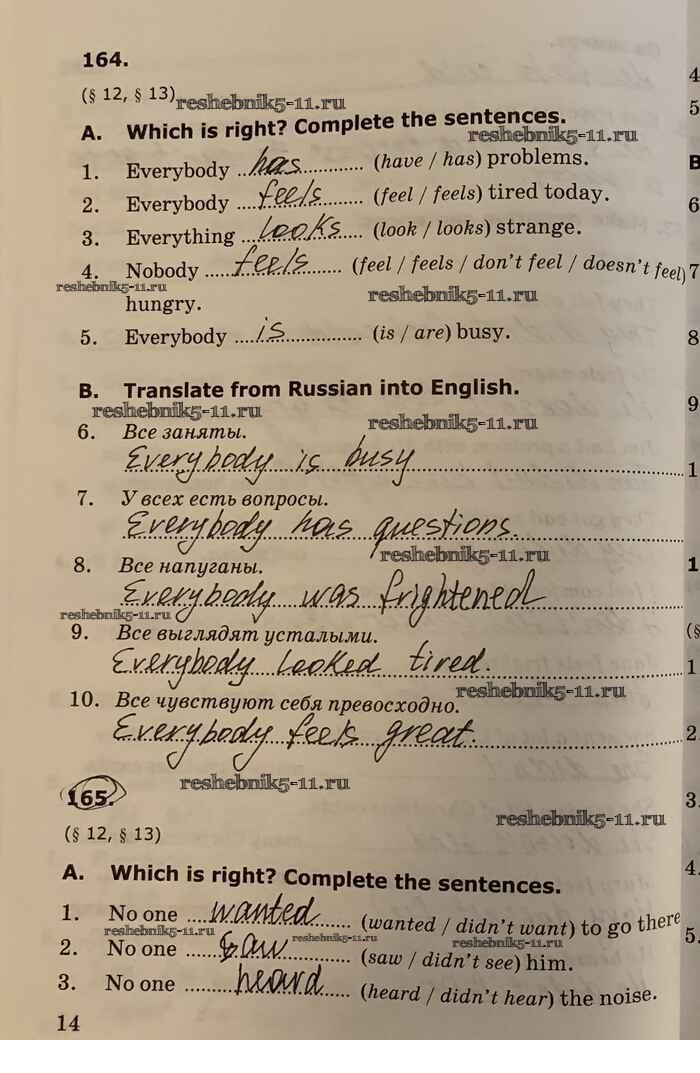 164.
(§ 12, § 13) reshebnik5-11.ru
A. Which is right? Complete the sentences.
reshebnik5-11.ru
1. Everybody ..has............ (have / has) problems.
2. Everybody ....feels....... (feel / feels) tired today.
3. Everything ...looks.... (look / looks) strange.
4. Nobody .....feels...... (feel / feels / don't feel / doesn't feel)
reshebnik5-11.ru reshebnik5-11.ru
hungry.
5. Everybody ....is............... (is / are) busy.
B. Translate from Russian into English.
reshebnik5-11.ru reshebnik5-11.ru
6. Все заняты.
Everybody is busy
7. У всех есть вопросы.
Everybody has questions.
reshebnik5-11.ru
8. Все напуганы.
Everybody was frightened
reshebnik5-11.ru
9. Все выглядят усталыми.
Everybody looked tired.
reshebnik5-11.ru
10. Все чувствуют себя превосходно.
Everybody feels great.
reshebnik5-11.ru
165.
reshebnik5-11.ru
(§ 12, § 13)
A. Which is right? Complete the sentences.
1. No one ....wanted...... (wanted / didn't want) to go there
reshebnik5-11.ru reshebnik5-11.ru reshebnik5-11.ru
2. No one ......saw........... (saw / didn't see) him.
3. No one ........heard..... (heard / didn't hear) the noise.
14
4
5
B
6
7
8
9
1
1
(§
1
2
3.
4.
5.